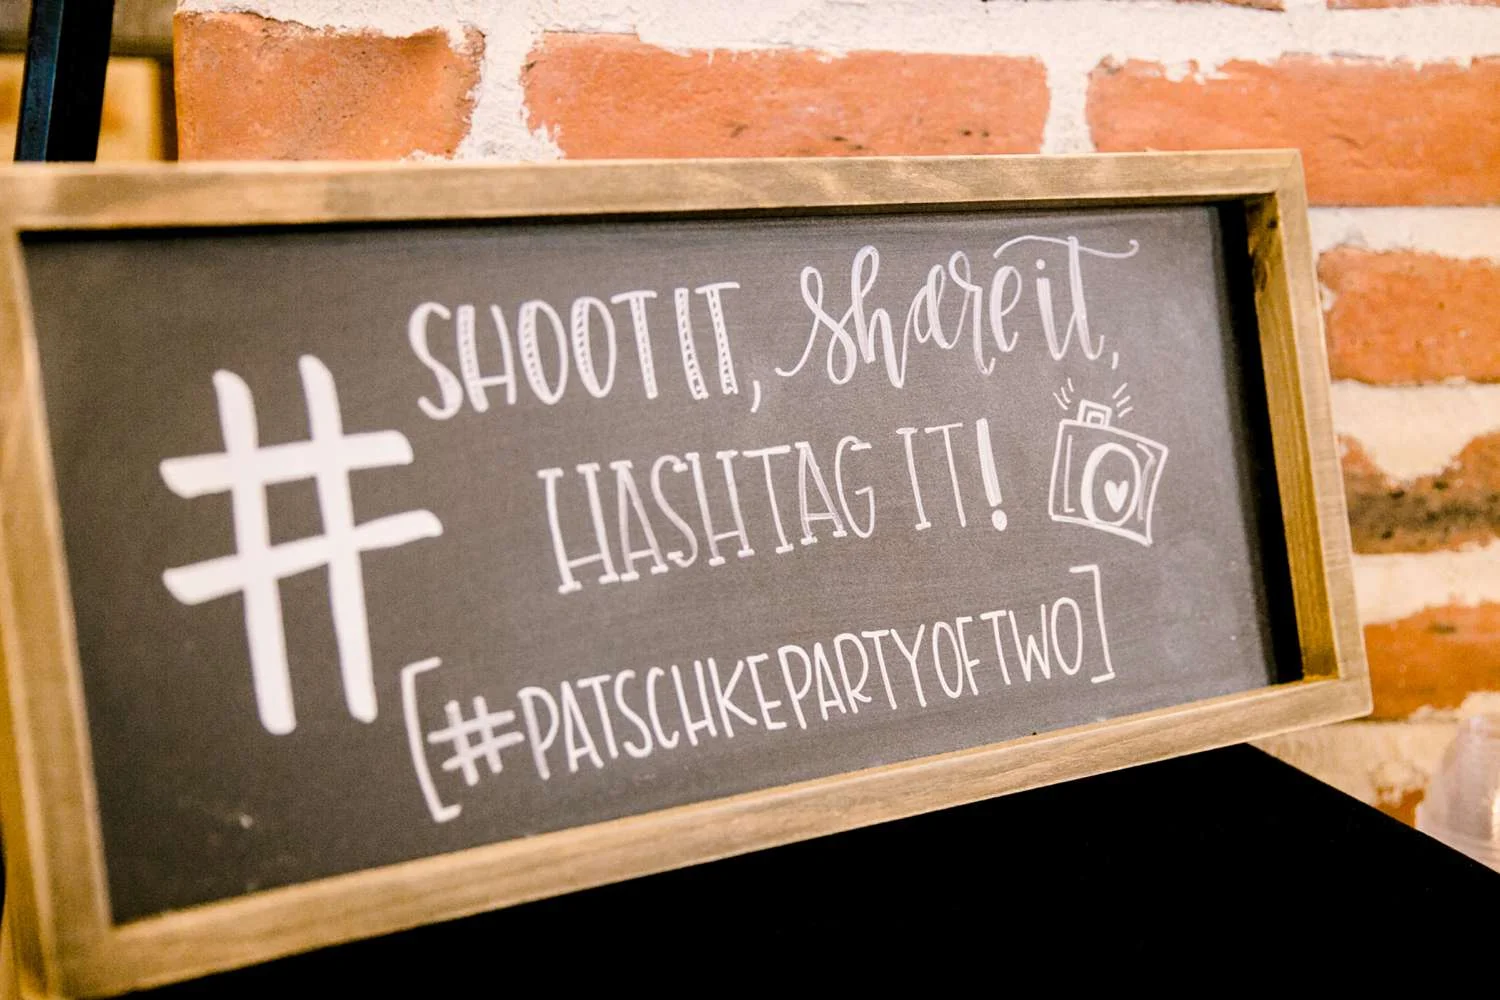 # SHOOT IT, share it,
HASHTAG IT!
[#PATSCHKEPARTYOFTWO]